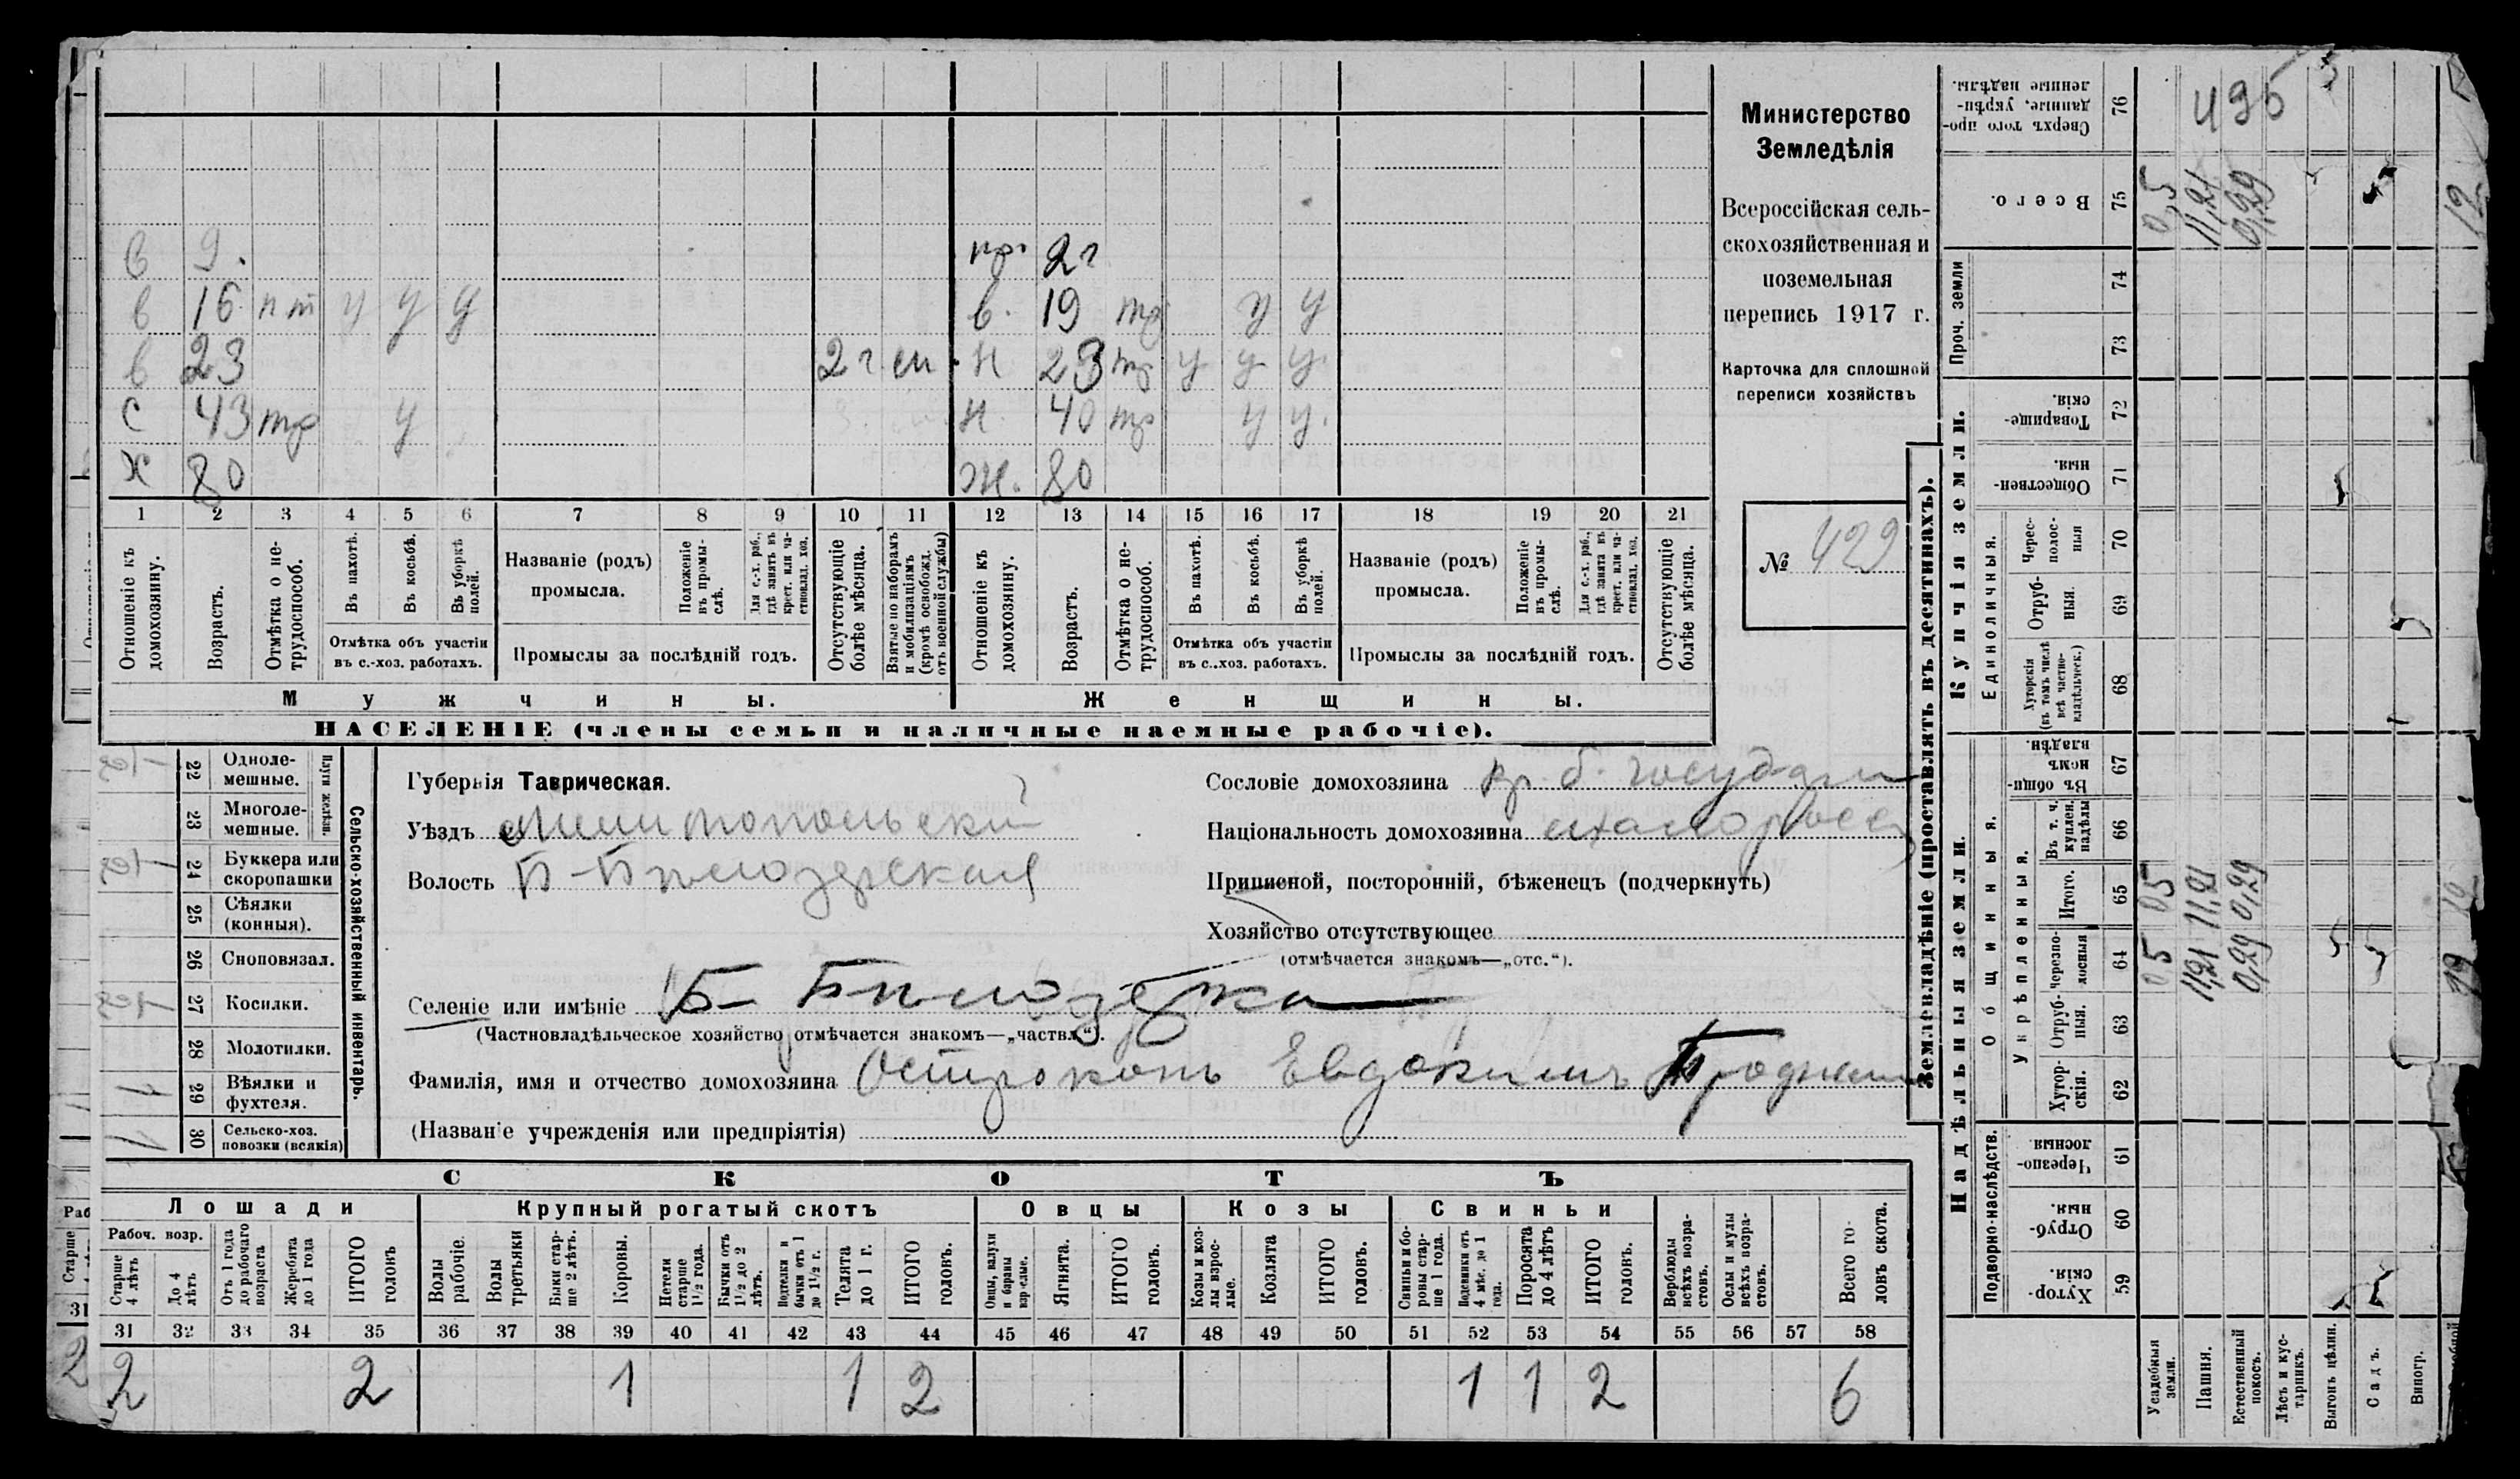 в 9. пр. 2 г
в 16 п т у у у в. 19 тр у у
в 23 2 г. сп. н 23 тр у у у.
с 43 тр у н. 40 тр у у.
х 80 ж. 80
1 2 3 4 5 6 7 8 9 10 11 12 13 14 15 16 17 18 19 20 21
Отношеніе къ домохозяину.
Возрастъ.
Отмѣтка о нетрудоспособ.
Въ пахотѣ.
Въ косьбѣ.
Въ уборкѣ полей.
Отмѣтка объ участіи
въ с.-хоз. работахъ.
Названіе (родъ)
промысла.
Положеніе въ промыслѣ.
Для с.-х. раб., гдѣ занятъ въ крест. или частновлад. хоз.
Промыслы за послѣдній годъ.
Отсутствующіе болѣе мѣсяца.
Взятые по наборамъ и мобилизаціямъ (кромѣ освобожд. отъ военной службы)
Отношеніе къ домохозяину.
Возрастъ.
Отмѣтка о нетрудоспособ.
Въ пахотѣ.
Въ косьбѣ.
Въ уборкѣ полей.
Отмѣтка объ участіи
въ с..хоз. работахъ.
Названіе (родъ)
промысла.
Положеніе въ промыслѣ.
Для с.-х. раб., гдѣ занята въ крест. или частновлад. хоз.
Промыслы за послѣдній годъ.
Отсутствующіе болѣе мѣсяца.
Мужчины. Женщины.
НАСЕЛЕНІЕ (члены семьи и наличные наемные рабочіе).
Министерство
Земледѣлія
Всероссійская сель-
скохозяйственная и
поземельная
перепись 1917 г.
Карточка для сплошной
переписи хозяйствъ
№ 429
Сельско-хозяйственный инвентарь.
Плуги желѣзн.
22 Однолемешные.
23 Многолемешные.
24 Буккера или скоропашки
25 Сѣялки (конныя).
26 Сноповязал.
27 Косилки.
28 Молотилки.
1 29 Вѣялки и фухтеля.
1 30 Сельско-хоз. повозки (всякія)
Губернія Таврическая.
Уѣздъ Мелитопольскій
Волость Б-Бѣлозерская
Сословіе домохозяина кр. б. государ
Національность домохозяина малоросс
Приписной, посторонній, бѣженецъ (подчеркнуть)
Хозяйство отсутствующее
(отмѣчается знакомъ—„отс.“).
Селеніе или имѣніе Б- Бѣлозерка
(Частновладѣльческое хозяйство отмѣчается знакомъ—„частвл“).
Фамилія, имя и отчество домохозяина Остроконь Евдокимъ
(Названіе учрежденія или предпріятія)
СКОТЪ
Лошади Крупный рогатый скотъ Овцы Козы Свиньи
Рабоч. возр.
Старше 4 лѣтъ
До 4 лѣтъ
Отъ 1 года до рабочаго возраста
Жеребята до 1 года
ИТОГО головъ
Волы рабочіе.
Волы третьяки
Быки старше 2 лѣтъ.
Коровы.
Нетели старше 1½ года.
Бычки отъ 1½ до 2 лѣтъ.
Подтелки и бычки отъ 1 до 1½ г.
Телята до 1 г.
ИТОГО головъ.
Овцы, валухи и бараны взрослые.
Ягнята.
ИТОГО головъ.
Козы и козлы взрослые.
Козлята
ИТОГО головъ.
Свиньи и боровы старше 1 года.
Подсвинки отъ 4 мѣс. до 1 года.
Поросята до 4 лѣтъ
ИТОГО головъ.
Верблюды всѣхъ возрастовъ.
Ослы и мулы всѣхъ возрастовъ.
Всего головъ скота.
31 32 33 34 35 36 37 38 39 40 41 42 43 44 45 46 47 48 49 50 51 52 53 54 55 56 57 58
2 2 1 1 2 1 1 2 6
Землевладѣніе (проставлять въ десятинахъ).
Надѣльныя земли. Купчія земли. Проч. земли
Подворно-наслѣдств.
Общинныя.
Укрѣпленныя.
Единоличныя.
59 Хуторскія.
60 Отрубныя.
61 Черезполосныя
62 Хуторскія.
63 Отрубныя.
64 Черезполосныя 0,5 11,21 0,29
65 Итого. 0,5 11,21 0,29
66 Въ т. ч. куплен. надѣлы
67 Въ общинномъ владѣн.
68 Хуторскія (въ томъ числѣ всѣ частновладѣльческ.)
69 Отрубныя.
70 Чересполосныя
71 Общественныя.
72 Товарищескія.
73
74
75 Всего. 0,5 11,21 0,29 12
76 Сверхъ того проданные, укрѣпленные надѣлы. 495
Усадебныя земли.
Пашня.
Естественный покосъ.
Лѣсъ и кустарникъ.
Выгонъ цѣлин.
Садъ.
Виногр.